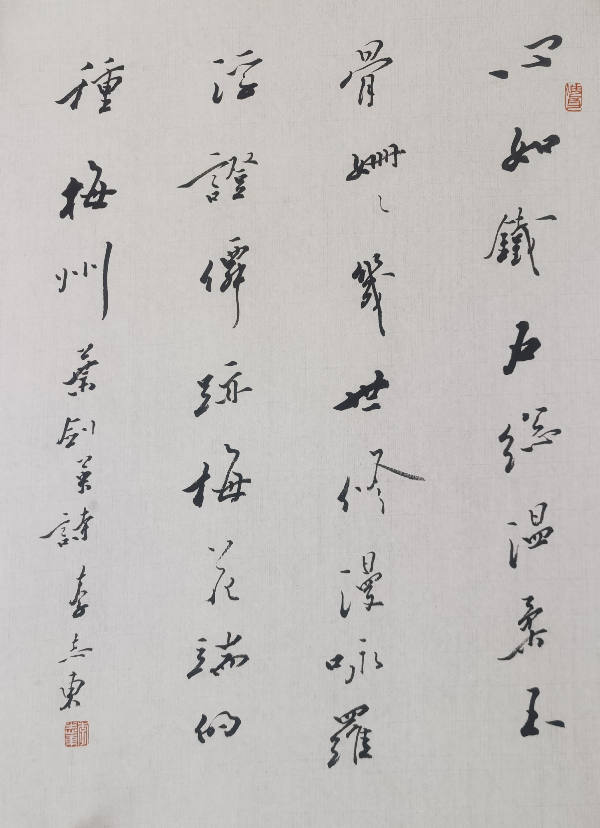 心如鐵石總温柔玉
骨姍々幾世修漫咏羅
浮證僊跡梅花端的
種梅州 葉劍英詩 李志東